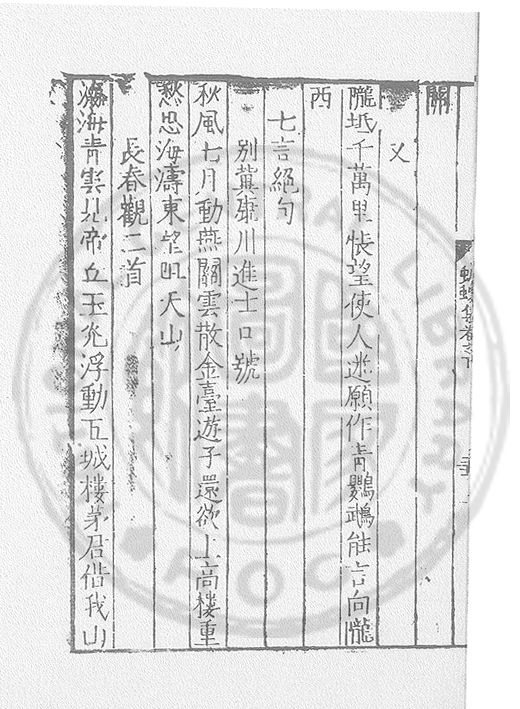 蠛蠓集卷之下
關
又
隴坻千萬里悵望使人迷願作青鸚鵡能言向隴
西
七言絕句
別冀康川進士口號
秋風七月動燕關雲散金臺遊子還欲上高樓重
愁思海濤東望阻天山
長春觀二首
海青雲北帝丘玉光浮動五城樓茅君借我山